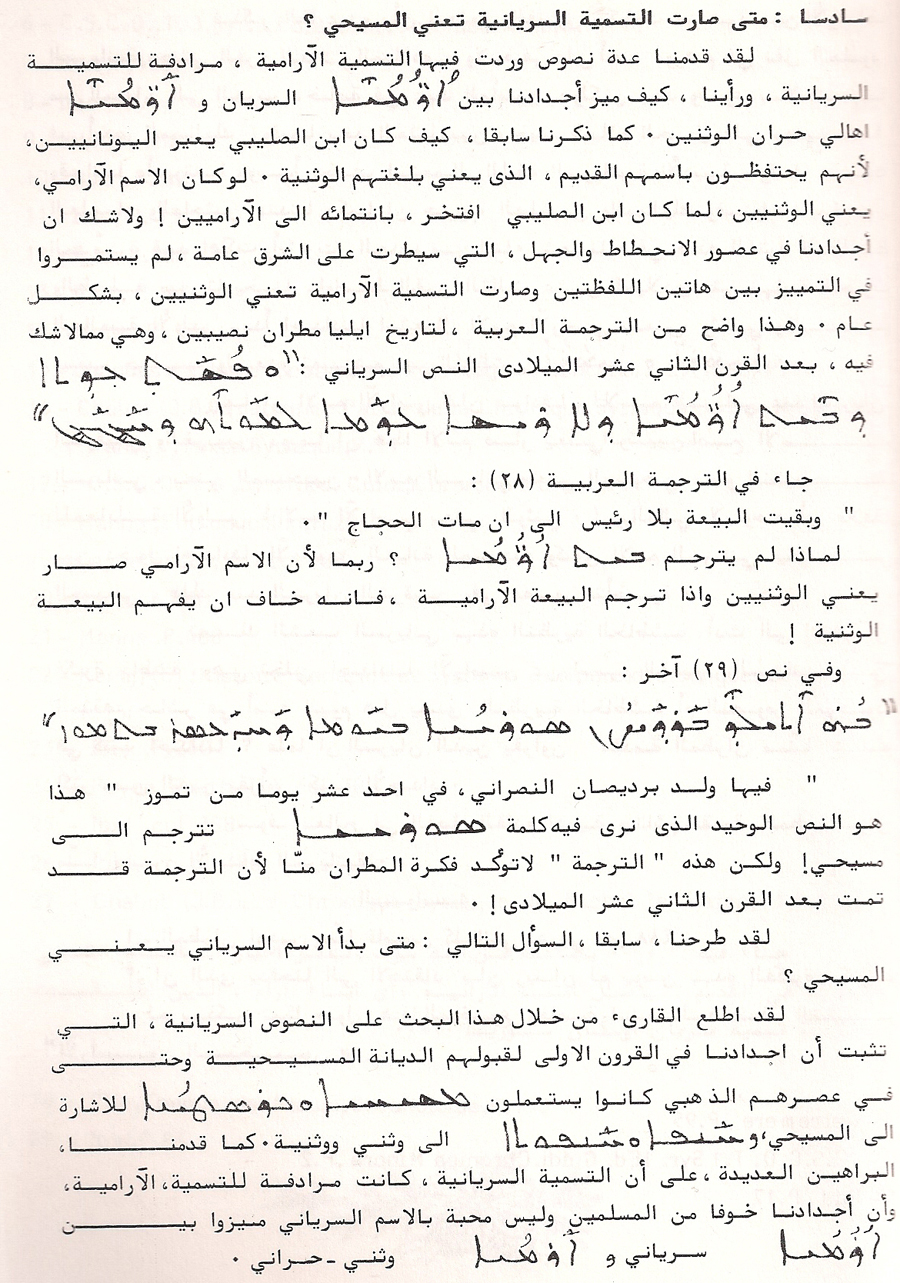 سادسا : متى صارت التسمية السريانية تعني المسيحي ؟
لقد قدمنا عدة نصوص وردت فيها التسمية الآرامية ، مرادفة للتسمية
السريانية ، ورأينا ، كيف ميز أجدادنا بين ܐܳܪ̈ܳܡܳܝܶܐ السريان و ܐܰܪ̈ܡܳܝܶܐ
اهالي حران الوثنين ٠ كما ذكرنا سابقا ، كيف كان ابن الصليبي يعير اليونانيين،
لأنهم يحتفظون باسمهم القديم ، الذى يعني بلغتهم الوثنية ٠ لوكان الاسم الآرامي،
يعني الوثنيين ، لما كان ابن الصليبي افتخر ، بانتمائه الى الآراميين ! ولاشك ان
أجدادنا في عصور الانحطاط والجهل ، التي سيطرت على الشرق عامة ، لم يستمروا
في التمييز بين هاتين اللفظتين وصارت التسمية الآرامية تعني الوثنيين ، بشكل
عام ٠ وهذا واضح من الترجمة العربية ، لتاريخ ايليا مطران نصيبين ، وهي ممالاشك
فيه ، بعد القرن الثاني عشر الميلادى النص السرياني : " ܘ ܥܕܬܐ
ܕ ܒܝܬ ܐܪ̈ܡܝܐ ܕܠܐ ܪܝܫܐ ܥܕܡܐ ܠܡܘܬܗ ܕ "
جاء في الترجمة العربية (٢٨) :
" وبقيت البيعة بلا رئيس الى ان مات الحجاج "٠
لماذا لم يترجم ܒܝܬ ܐܪ̈ܡܝܐ ؟ ربما لأن الاسم الآرامي صار
يعني الوثنيين واذا ترجم البيعة الآرامية ، فانه خاف ان يفهم البيعة
الوثنية !
وفي نص (٢٩) آخر :
" ܒܗ ܐܬܝܠܕ ܒܪܕܝܨܢ ܣܘܪܝܝܐ ܒܝܘܡܐ ܕܚܕܥܣܪ ܒܬܡܘܙ "
" فيها ولد برديصان النصراني، في احد عشر يوما من تموز " هذا
هو النص الوحيد الذى نرى فيه كلمة ܣܘܪܝܝܐ تترجم الى
مسيحي! ولكن هذه " الترجمة " لاتوكد فكرة المطران منّا لأن الترجمة قد
تمت بعد القرن الثاني عشر الميلادى! ٠
لقد طرحنا ، سابقا ، السوأل التالي : متى بدأ الاسم السرياني يعني
المسيحي ؟
لقد اطلع القارىء من خلال هذا البحث على النصوص السريانية ، التي
تثبت أن اجدادنا في القرون الاولى لقبولهم الديانة المسيحية وحتى
في عصرهم الذهبي كانوا يستعملون ܡܫܝܚܝܐ ܘ ܟܪܣܛܝܢܐ للاشارة
الى المسيحي، و ܚܢܦܐ ܘ ܚܢܦܘܬܐ الى وثني ووثنية ٠ كما قدمنا ،
البراهين العديدة ، على أن التسمية السريانية ، كانت مرادفة للتسمية، الآرامية،
وأن أجدادنا خوفا من المسلمين وليس محبة بالاسم السرياني ميزوا بين
ܐܳܪܳܡܳܝܐ سرياني و ܐܰܪܡܳܝܐ وثني - حراني ٠